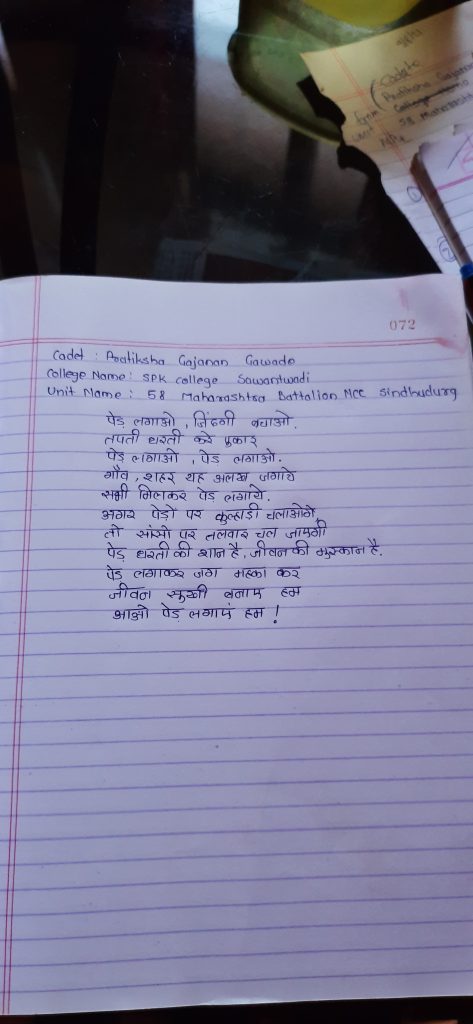 9/8/21
Cadet:
Pratiksha Gajanan
College Name
58 Maharashtra
072
Cadet : Pratiksha Gajanan Gawade
College Name: SPK College Sawantwadi
Unit Name : 58 Maharashtra Battalion NCC Sindhudurg
पेड़ लगाओ , जिंदगी बचाओ.
तपती धरती करे पुकार
पेड़ लगाओ , पेड़ लगाओ.
गाँव , शहर यह अलख जगाये
सभी मिलकर पेड़ लगाये.
अगर पेड़ो पर कुल्हाडी चलाओगे,
तो सांसो पर तलवार चल जाएगी
पेड़ धरती की शान है, जीवन की मुस्कान है.
पेड़ लगाकर जग महका कर
जीवन सुखी बनाए हम
आओ पेड़ लगाएं हम !